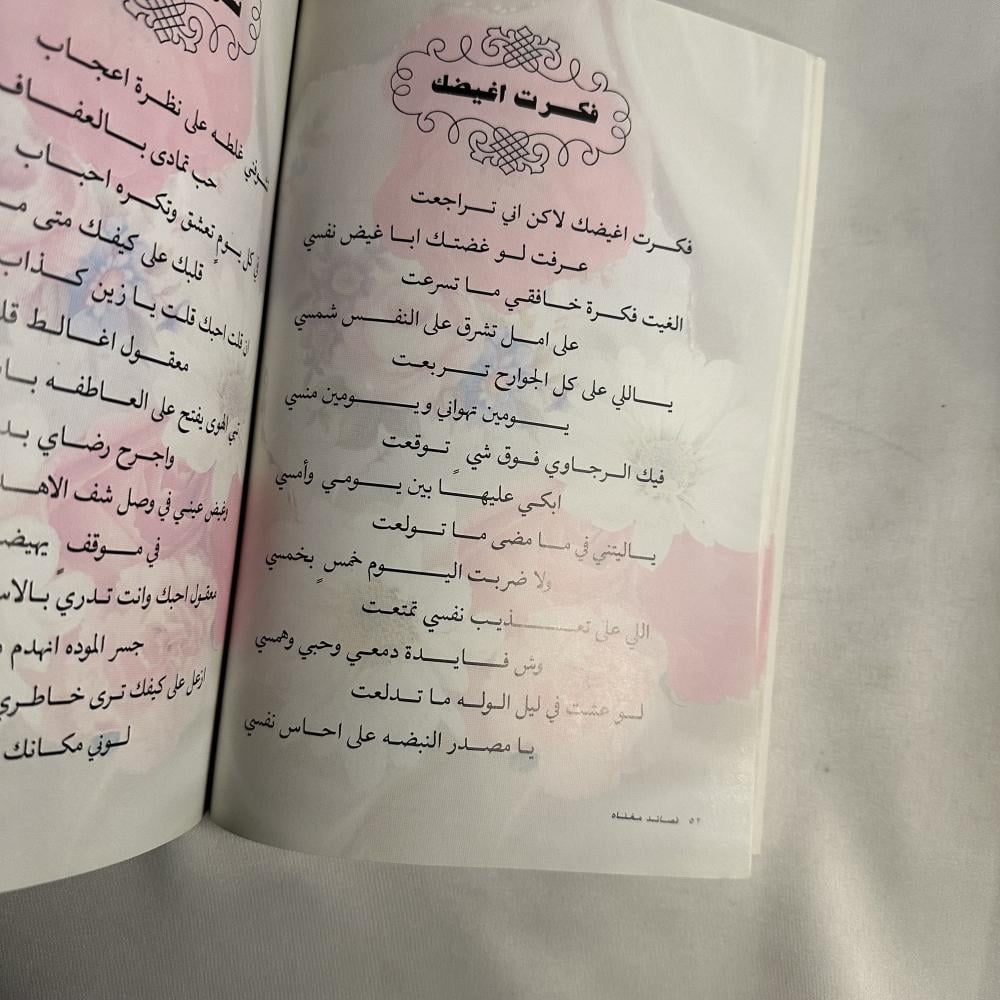 فكرت اغيضك
فكرت اغيضك لاكن اني تراجعت
عرفت لو غضتك ابا غيض نفسي
الغيت فكرة خافقي ما تسرعت
على امل تشرق على النفس شمسي
ياللي على كل الجوارح تربعت
يومين تهواني ويومين منسي
فيك الرجاوي فوق شيٍ توقعت
ابكي عليها بين يومي وأمسي
ياليتني في ما مضى ما تولعت
ولا ضربت اليوم خمسٍ بخمسي
اللي على تعذيب نفسي تمتعت
وش فايدة دمعي وحبي وهمسي
لو عشت في ليل الوله ما تدلعت
يا مصدر النبضه على احاس نفسي
٥٢ قصائد مغناه
غلطه على نظرة اعجاب
حب تمادى بالعفاف
كل يومٍ تعشق وتكره احباب
قلبك على كيفك متى
ان قلت احبك قلت يا زين كذاب
معقول اغالط
الهوى يفتح على العاطفه
واجرح رضاي
وغيض عيني في وصل شف الاهد
في موقفٍ يهيض
معقول احبك وانت تدري بالاس
جسر الموده انهدم
ازعل على كيفك ترى خاطري
لوني مكانك